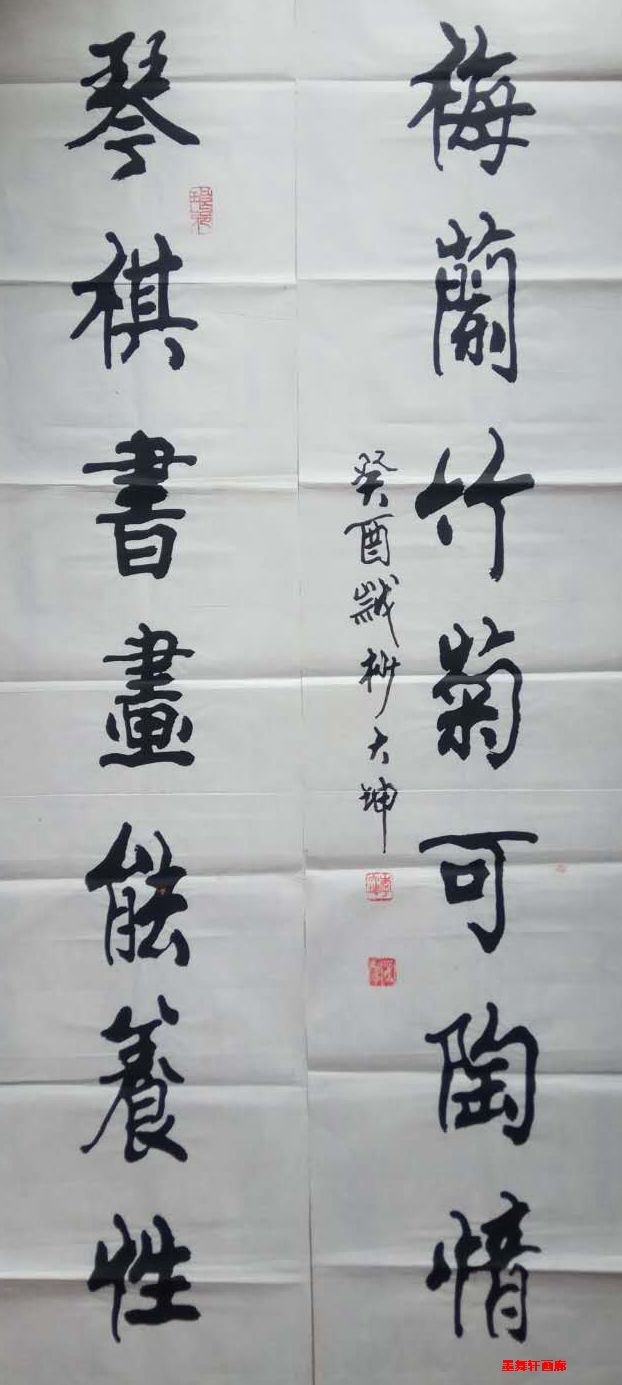 琴棋書畫能養性
梅蘭竹菊可陶情
癸酉歲杪大
墨舞轩画廊